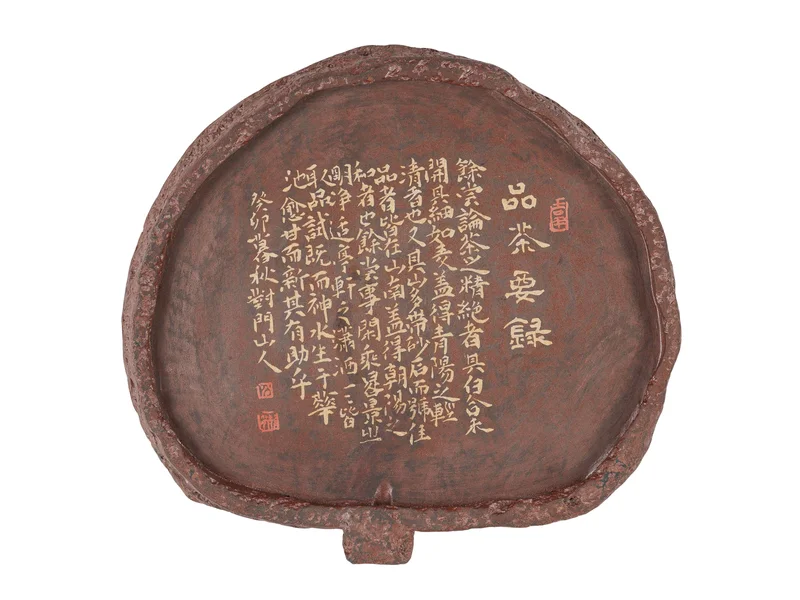 品茶要録
餘嘗論茶之精絶者其白合未
開其細如麦盖得青陽之輕
清者也又其山多帶砂石而號佳
品者皆在山南盖得朝陽之
和者也餘嘗事閑乘晷景之
明净適亭軒之瀟洒一一皆
取品試既而神水生于華
池愈甘而新其有助乎
癸卯暮秋對門山人